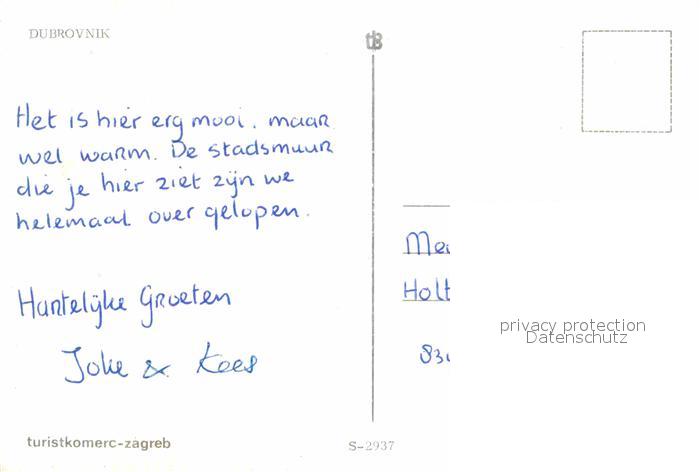 DUBROVNIK
Het is hier erg mooi. maar
wel warm. De stadsmuur
die je hier ziet zijn we
helemaal over gelopen.
Hartelijke Groeten
Joke & Kees
Holt
privacy protection
Datenschutz
turistkomerc-zagreb
S-2937